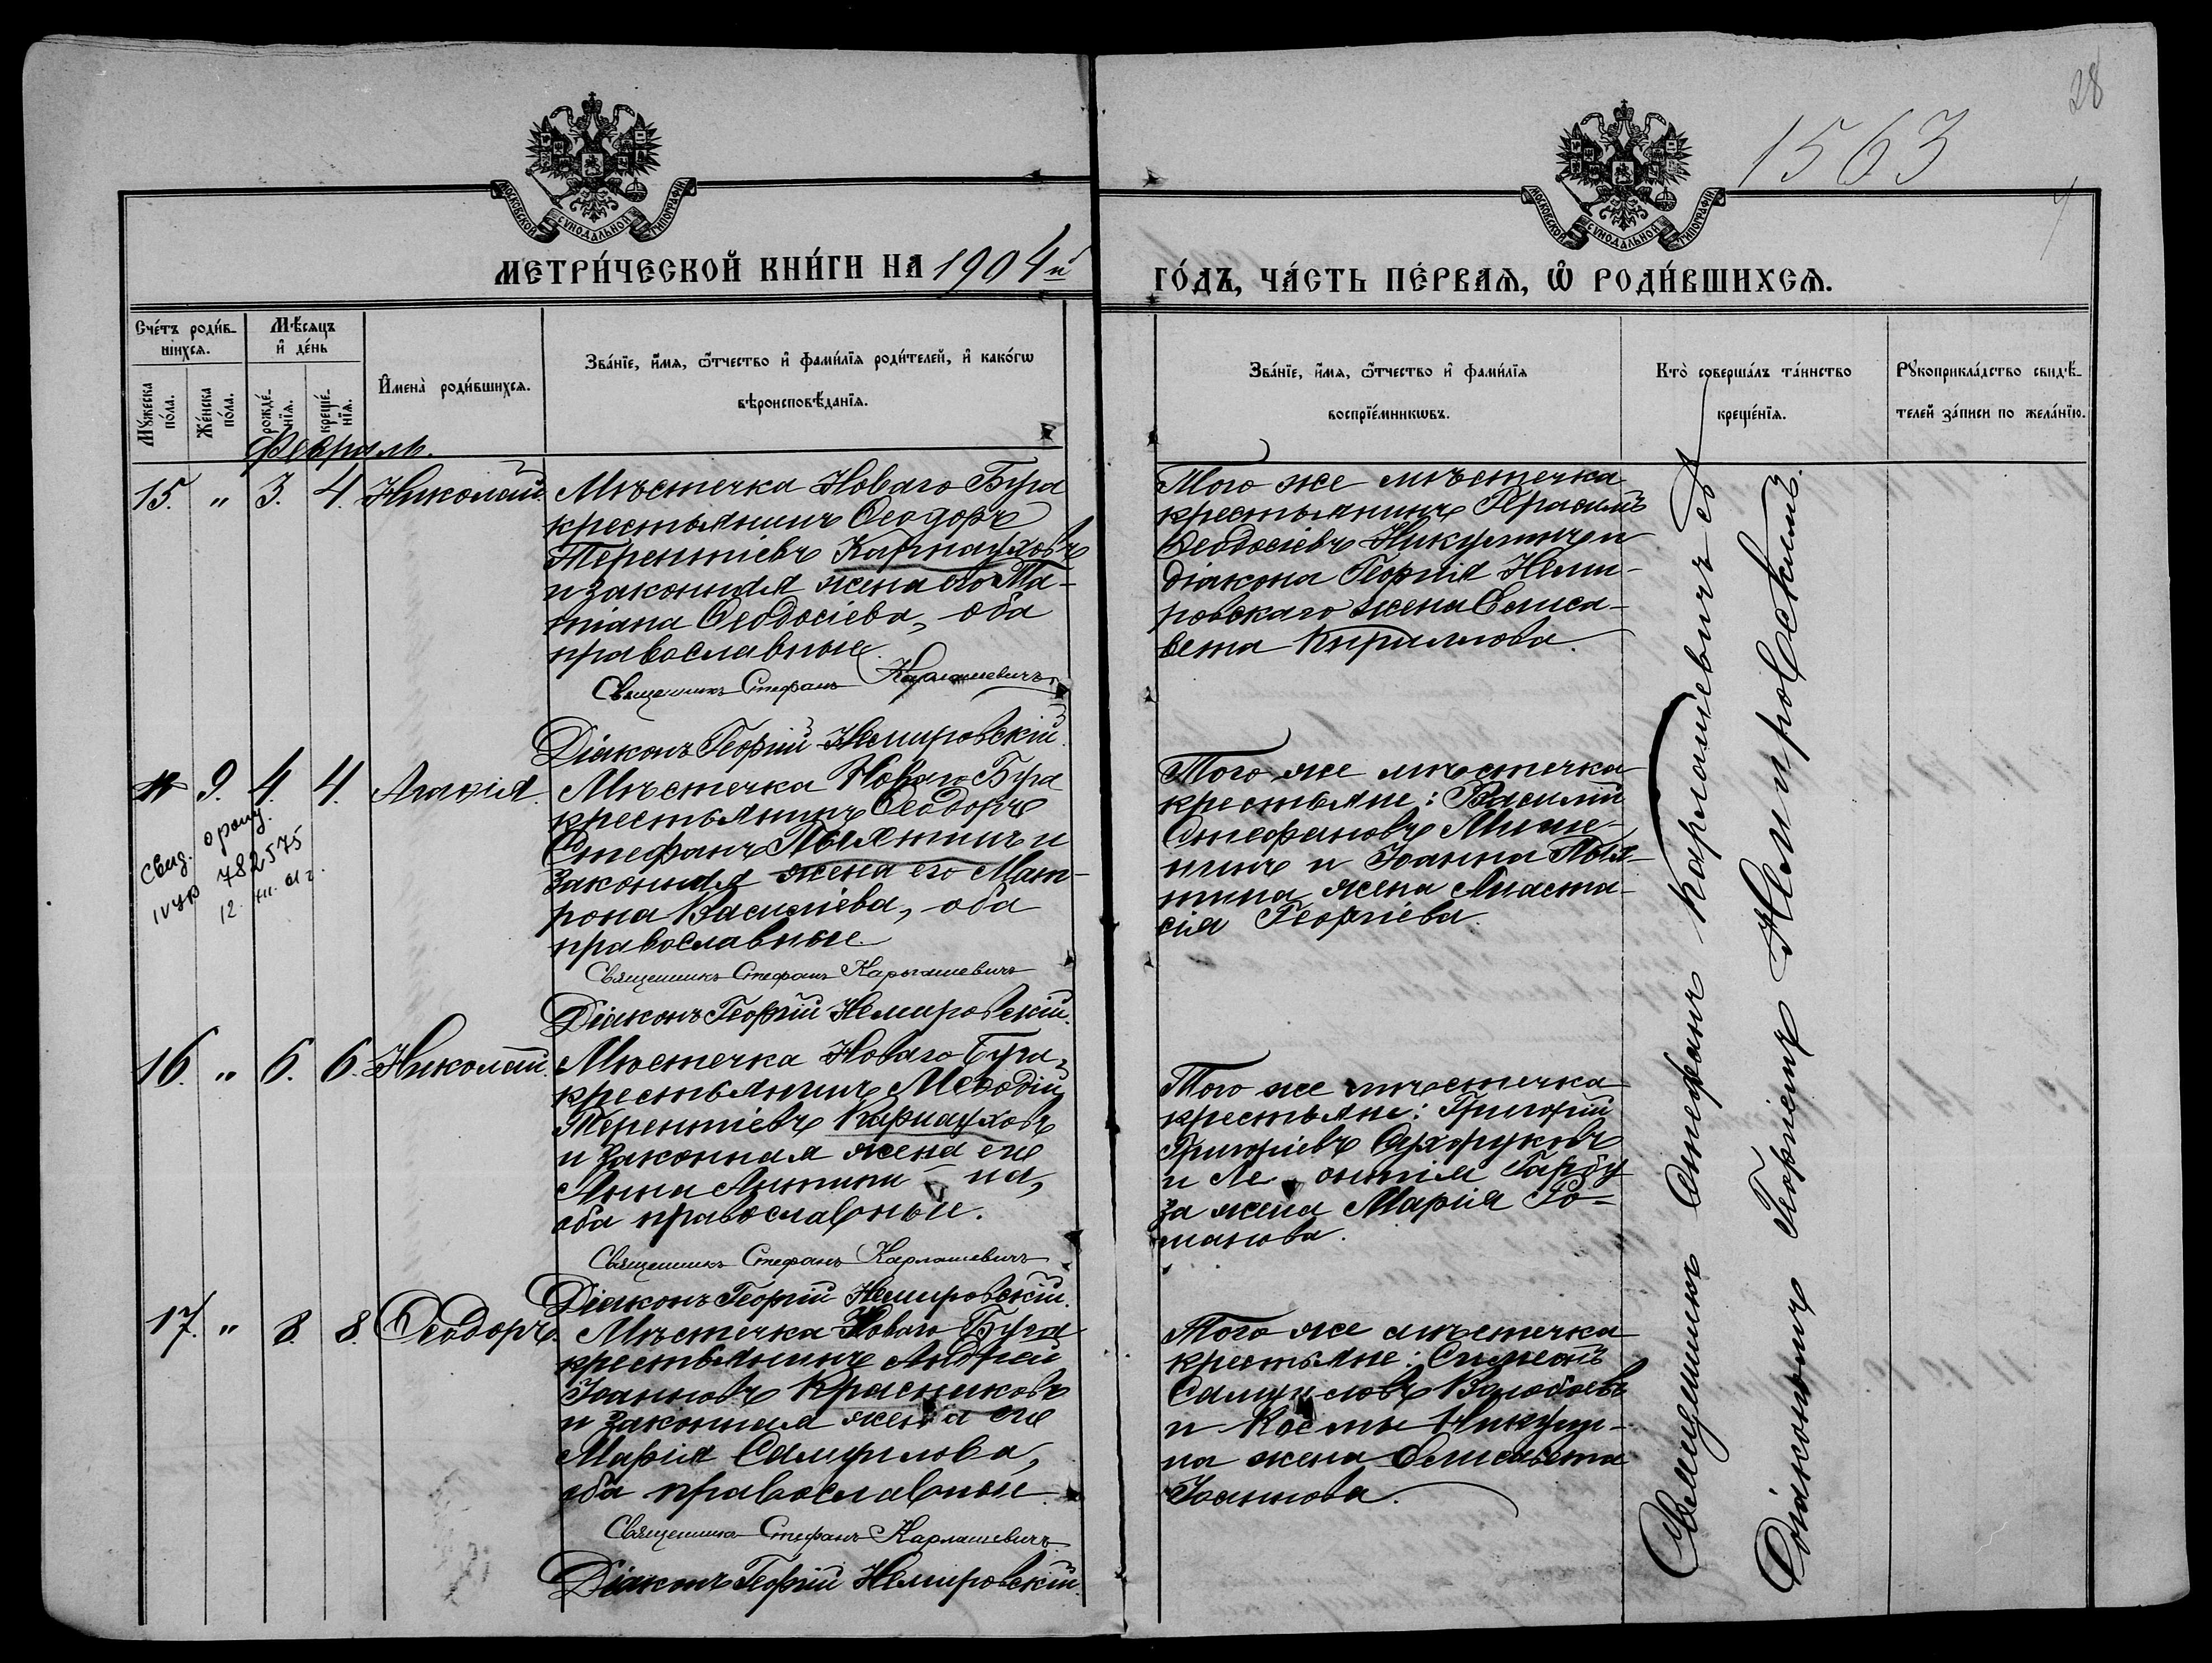 28
1563
МОСКОВСКОЙ СѴНОДАЛЬНОЙ ТИПОГРАФІИ
МОСКОВСКОЙ СѴНОДАЛЬНОЙ ТИПОГРАФІИ
МЕТРИ́ЧЕСКОЙ КНИ́ГИ НА 1904й
ГО́ДЪ, ЧА́СТЬ ПЕ́РВАЯ, Ѿ РОДИ́ВШИХСЯ.
Сче́тъ роди́в-
шихся.
Мꙋжеска по́ла.
Же́нска по́ла.
Мѣ́сяцъ
и҆ де́нь
рожде́-нїя.
креще́-нїя.
И҆мена̀ роди́вшихся.
Зва́нїе, и҆́мя, ѻ҆́тчество и҆ фами́лїя роди́телей, и҆ како́гѡ
вѣроисповѣ́данїя.
Зва́нїе, и҆́мя, ѻ҆́тчество и҆ фами́лїя
воспрїе́мникѡвъ.
Кто̀ соверша́лъ та́инство
креще́нїя.
Рꙋкоприкла́дство свидѣ́-
телей за́писи по жела́нїю.
Февраль.
15. " 3. 4. Николай
Мѣстечка Новаго Буга
крестьянинъ Ѳеодоръ
Терентіевъ Карнауховъ
и законная жена его Та-
тіана Ѳеодосіева, оба
православные.
Священникъ Стефанъ Карлашевичъ
Діаконъ Георгій Немировскій.
Того же мѣстечка
крестьянинъ Герасимъ
Ѳеодосіевъ Никулинъ и
діакона Георгія Неми-
ровскаго жена Елиса-
вета Кириллова.
9. 4. 4. Агафія.
свид.
782575
12.
Мѣстечка Новаго Буга
крестьянинъ Ѳеодоръ
Стефанъ Пыхтинъ и
законная жена его Мат-
рона Василіева, оба
православные.
Священникъ Стефанъ Карлашевичъ
Діаконъ Георгій Немировскій.
Того же мѣстечка
крестьяне: Василій
Стефановъ
и Іоанна
жена Анаста-
сія Георгіева.
16. " 6. 6. Николай.
Мѣстечка Новаго Буга,
крестьянинъ Меѳодій
Терентіевъ Карнауховъ
и законная жена его
Анна Антони на,
оба православные.
Священникъ Стефанъ Карлашевичъ
Діаконъ Георгій Немировскій.
Того же мѣстечка
крестьяне: Григорій
Григоріевъ Сухоруковъ
и Ле онтія Гарбу
за жена Марія Ро-
манова.
17. " 8. 8. Ѳеодоръ.
Мѣстечка Новаго Буга
крестьянинъ Андрей
Іоанновъ Красниковъ
и законная жена его
Марія Самуилова,
оба православные
Священникъ Стефанъ Карлашевичъ
Діаконъ Георгій Немировскій.
Того же мѣстечка
крестьяне: Симеонъ
Самуиловъ
и Косьмы Никули-
на жена Елисавета
Іоаннова.
Священникъ Стефанъ Карлашевичъ съ
Діакономъ Георгіемъ Немировскимъ.